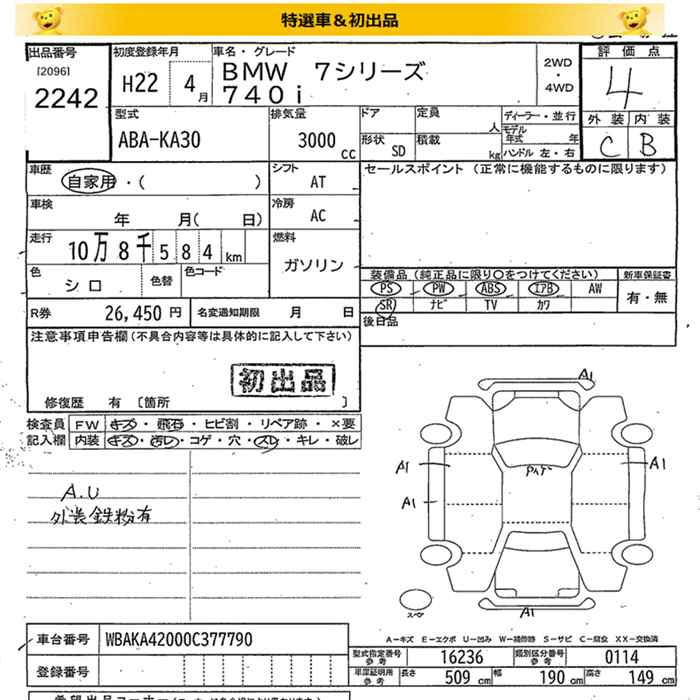 特選車＆初出品
出品番号
[2096]
2242
初度登録年月
H22 4月
車名・グレード
BMW 7シリーズ
740i
2WD
・
4WD
評価点
4
外装 内装
C B
型式
ABA-KA30
排気量
3000 cc
ドア
定員
人
形状 SD
積載
kg
ディーラー・並行
モデル年式 年
ハンドル 左・右
車歴
自家用・( )
シフト
AT
セールスポイント（正常に機能するものに限ります）
車検
年 月( 日)
冷房
AC
走行
10万8千584km
燃料
ガソリン
色
シロ
色替
色コード
装備品（純正品に限り○をつけてください）
新車保証書
PS PW ABS エアB AW
有・無
SR ナビ TV カワ
R券 26,450円
名変通知期限 月 日
後日品
注意事項申告欄(不具合内容等は具体的に記入して下さい)
初出品
修復歴 有 〔箇所 〕
検査員
記入欄
FW キズ・飛石・ヒビ割・リペア跡・×要
内装 キズ・汚レ・コゲ・穴・スレ・キレ・破レ
A.U
外装鉄粉有
A1
A1
A1
A1
A1
A-キズ E-エクボ U-凹み W-補修跡 S-サビ C-腐食 XX-交換済
車台番号 WBAKA42000C377790
登録番号
型式指定番号
参考
16236
類別区分番号
参考
0114
車庫証明用
参考
長さ 509cm 幅 190cm 高さ 149cm